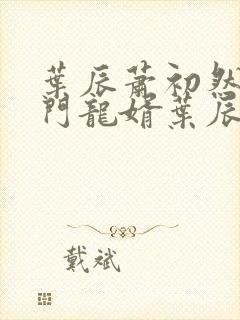 葉辰蕭初然
門龍婿葉辰
戴斌